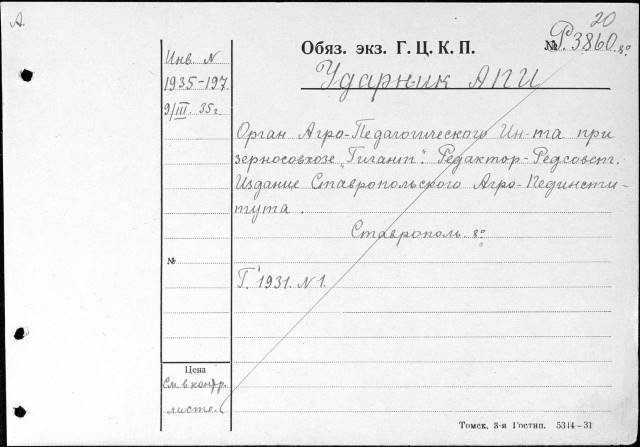 А.
20
Обяз. экз. Г. Ц. К. П.
№ Р. 3860. 8º
Инв. N
1935-197
9/III. 35 г.
Ударник АПИ
Орган Агро-Педагогического Ин-та при
зерносовхозе „Гигант". Редактор-Редсовет.
Издание Ставропольского Агро-Пединсти-
тута.
Ставрополь. 8º
№
Г. 1931. N 1.
Цена
См. в контр.
листе.
Томск. 3-я Гостип. 5314—31